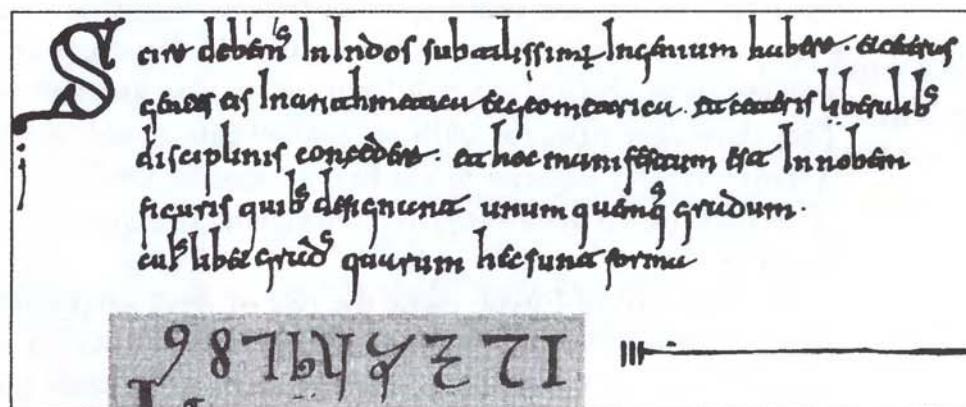 Scire debemˢ In Indos subtilissimū Ingenium habere. et ceteras
gentes eis In arithmetica et geometrica. et ceteris liberalibˢ
disciplinis concedere. et hoc manifestum est In nobem
figuris quibˢ designant unum quemqˢ gradum.
cuiˢlibet gradˢ quarum hec sunt forma
9 8 7 6 5 4 3 2 1